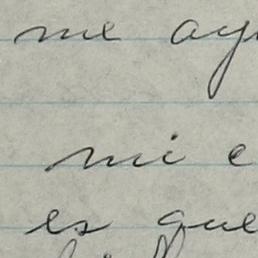 me ay
mi e
es que